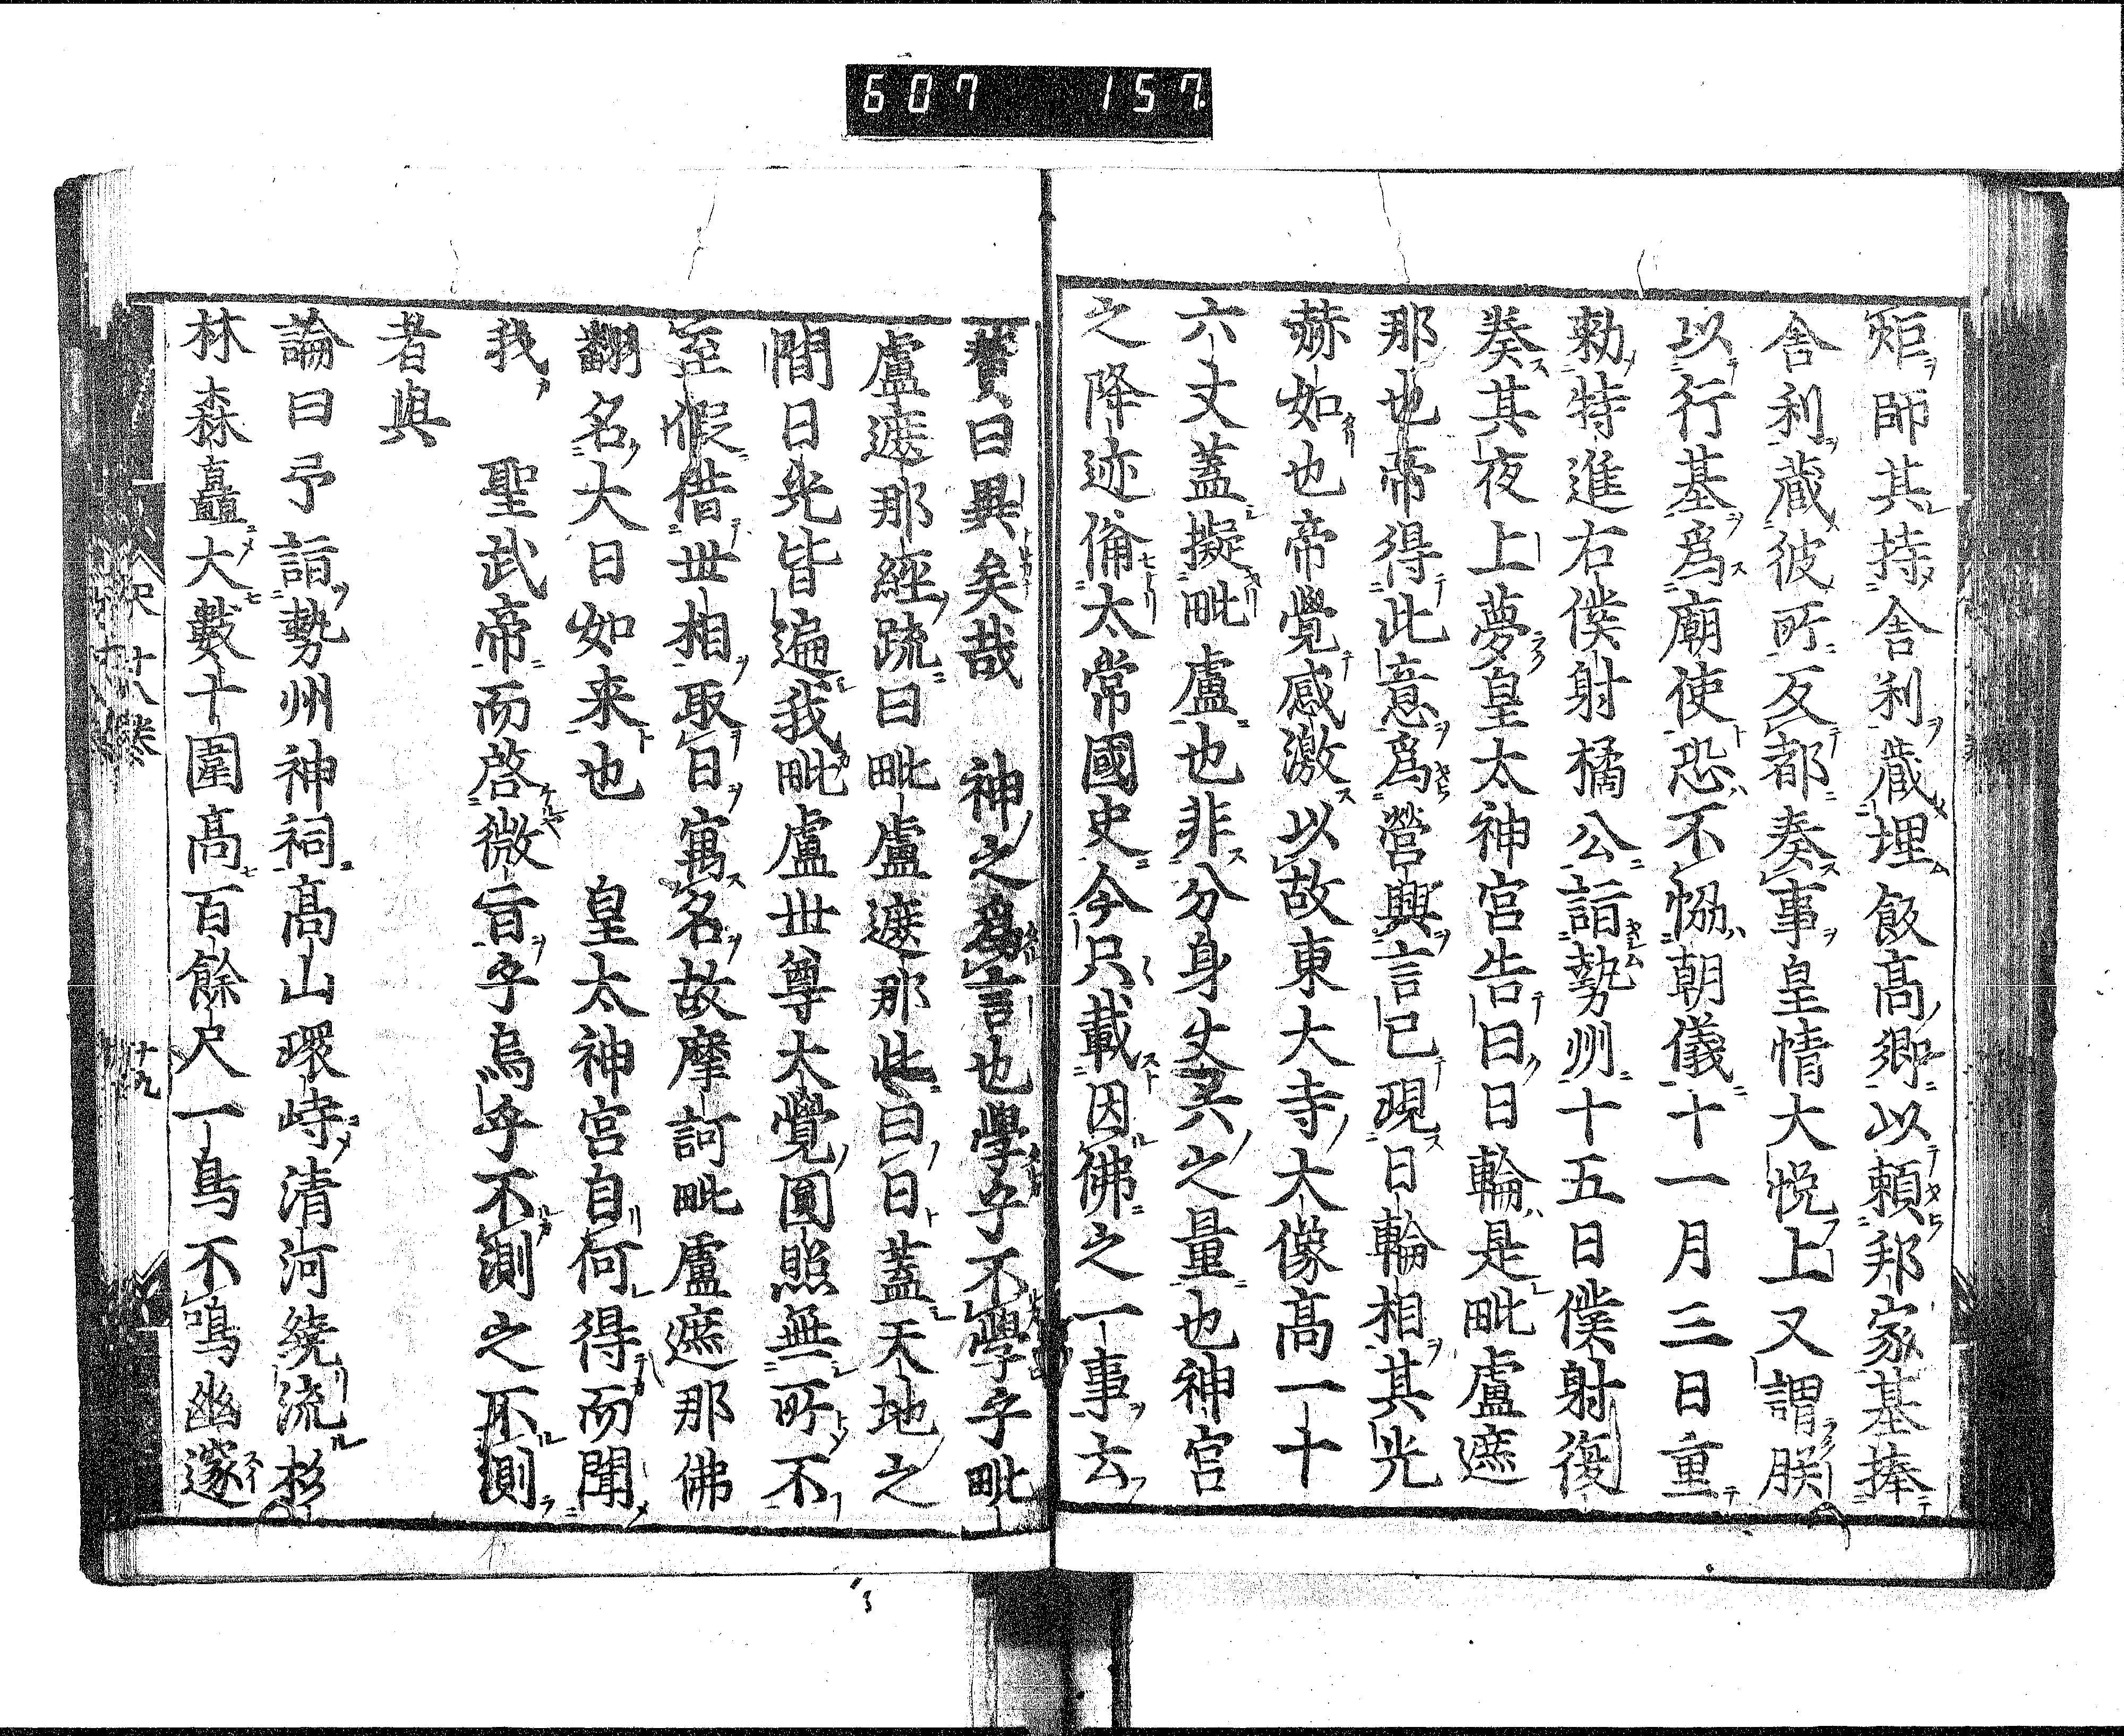 607 157
炬師其持舎利蔵埋飯高郷以頼邦家基捧
舎利蔵彼所反都奏事皇情大悦上又謂朕
以行基爲廟使恐不恊朝儀十一月三日重
勅特進右僕射橘公詣勢州十五日僕射復
奏其夜上夢皇太神宮告曰日輪是毗盧遮
那也帝得此意爲營興言已現日輪相其光
赫如也帝覺感激以故東大寺大像高一十
六丈蓋擬毗盧也非分身丈六之量也神宮
之降迹僃太常國史今只載因佛之一事云
賛曰異矣哉 神之爲言也學乎不學乎毗
盧遮那經䟽曰毗盧遮那此曰日蓋天地之
間日光皆遍我毗盧世尊大覺圓照無所不
至假借世相取日寓名故摩訶毗盧遮那佛
翻名大日如来也 皇太神宮自何得而聞
我 聖武帝而啓微旨乎烏乎不測之不測
者與
論曰予詣勢州神祠高山環峙清河繞流杉
林森矗大數十圍高百餘尺一鳥不鳴幽邃
釈 十八巻 十九